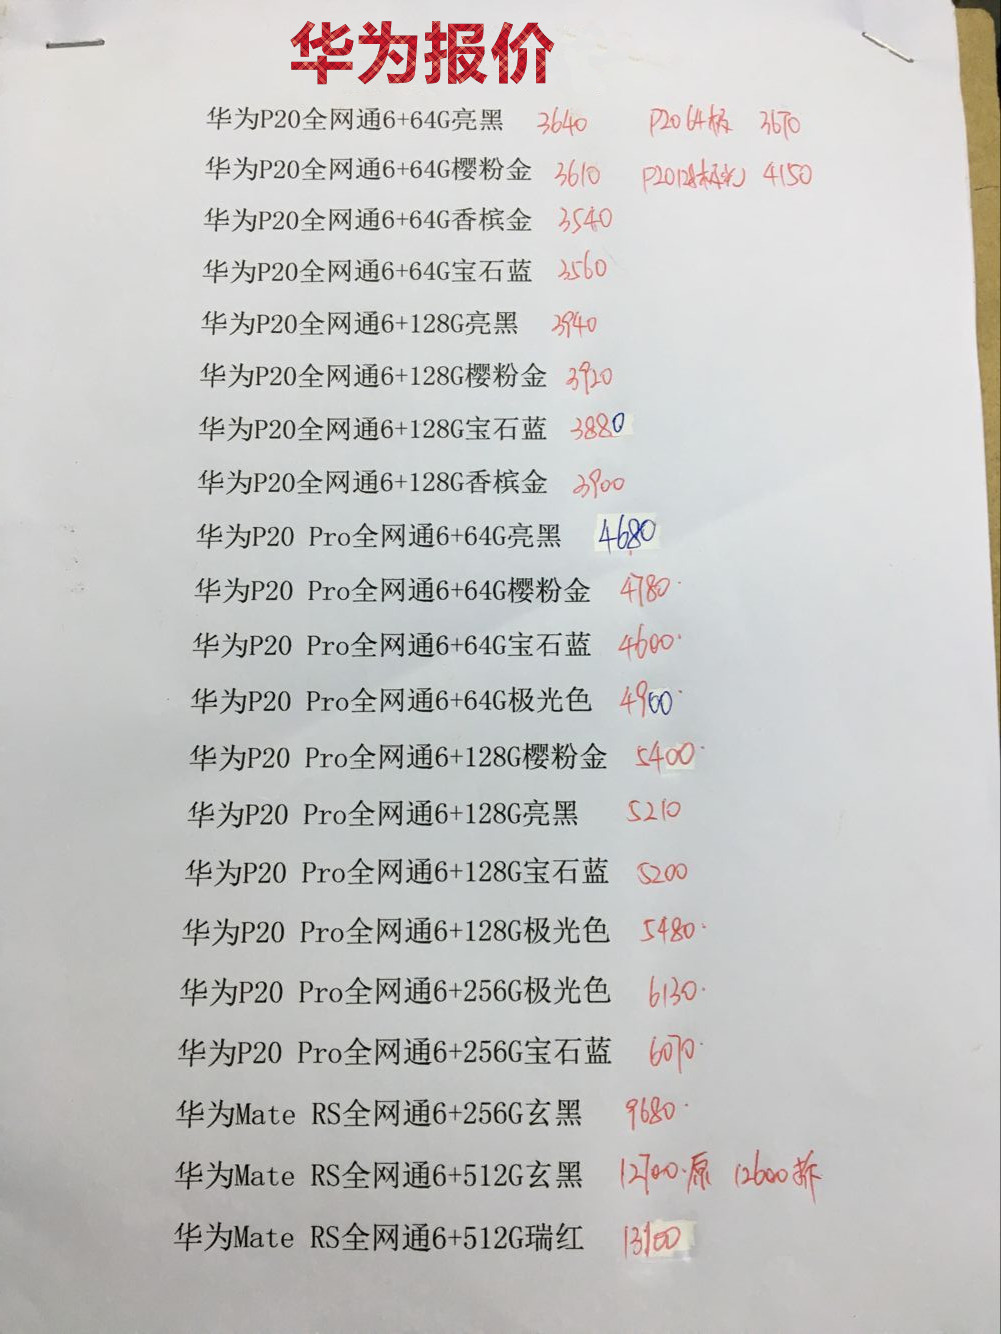 华为报价
华为P20全网通6+64G亮黑 3640 P20 64极 3670
华为P20全网通6+64G樱粉金 3610 P20128极光 4150
华为P20全网通6+64G香槟金 3540
华为P20全网通6+64G宝石蓝 3560
华为P20全网通6+128G亮黑 3940
华为P20全网通6+128G樱粉金 3920
华为P20全网通6+128G宝石蓝 3880
华为P20全网通6+128G香槟金 3900
华为P20 Pro全网通6+64G亮黑 4680
华为P20 Pro全网通6+64G樱粉金 4780
华为P20 Pro全网通6+64G宝石蓝 4600
华为P20 Pro全网通6+64G极光色 4900
华为P20 Pro全网通6+128G樱粉金 5400
华为P20 Pro全网通6+128G亮黑 5210
华为P20 Pro全网通6+128G宝石蓝 5200
华为P20 Pro全网通6+128G极光色 5480
华为P20 Pro全网通6+256G极光色 6130
华为P20 Pro全网通6+256G宝石蓝 6070
华为Mate RS全网通6+256G玄黑 9680
华为Mate RS全网通6+512G玄黑 12700.原 12600拆
华为Mate RS全网通6+512G瑞红 13900